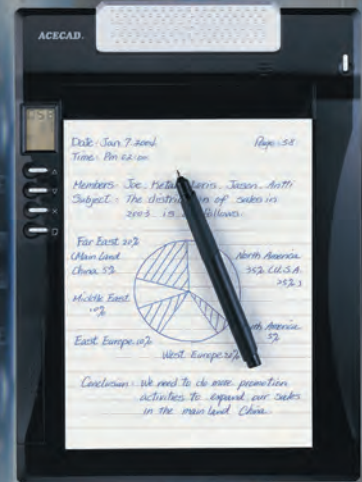 ACECAD
58
Date: Jan 7. 2004 Page: 58
Time: Pm 02:00
Members: Joe, Jason, Antti
Subject: The of sales in
2003 is follows
Far East 20%
(Main Land
China 5%
North America
35% (U.S.A
25%)
Middle East
10%
America
5%
East Europe 10%
West Europe 20%
Conclusion: We need to do more promotion
activities to expand our sales
in the main land China.